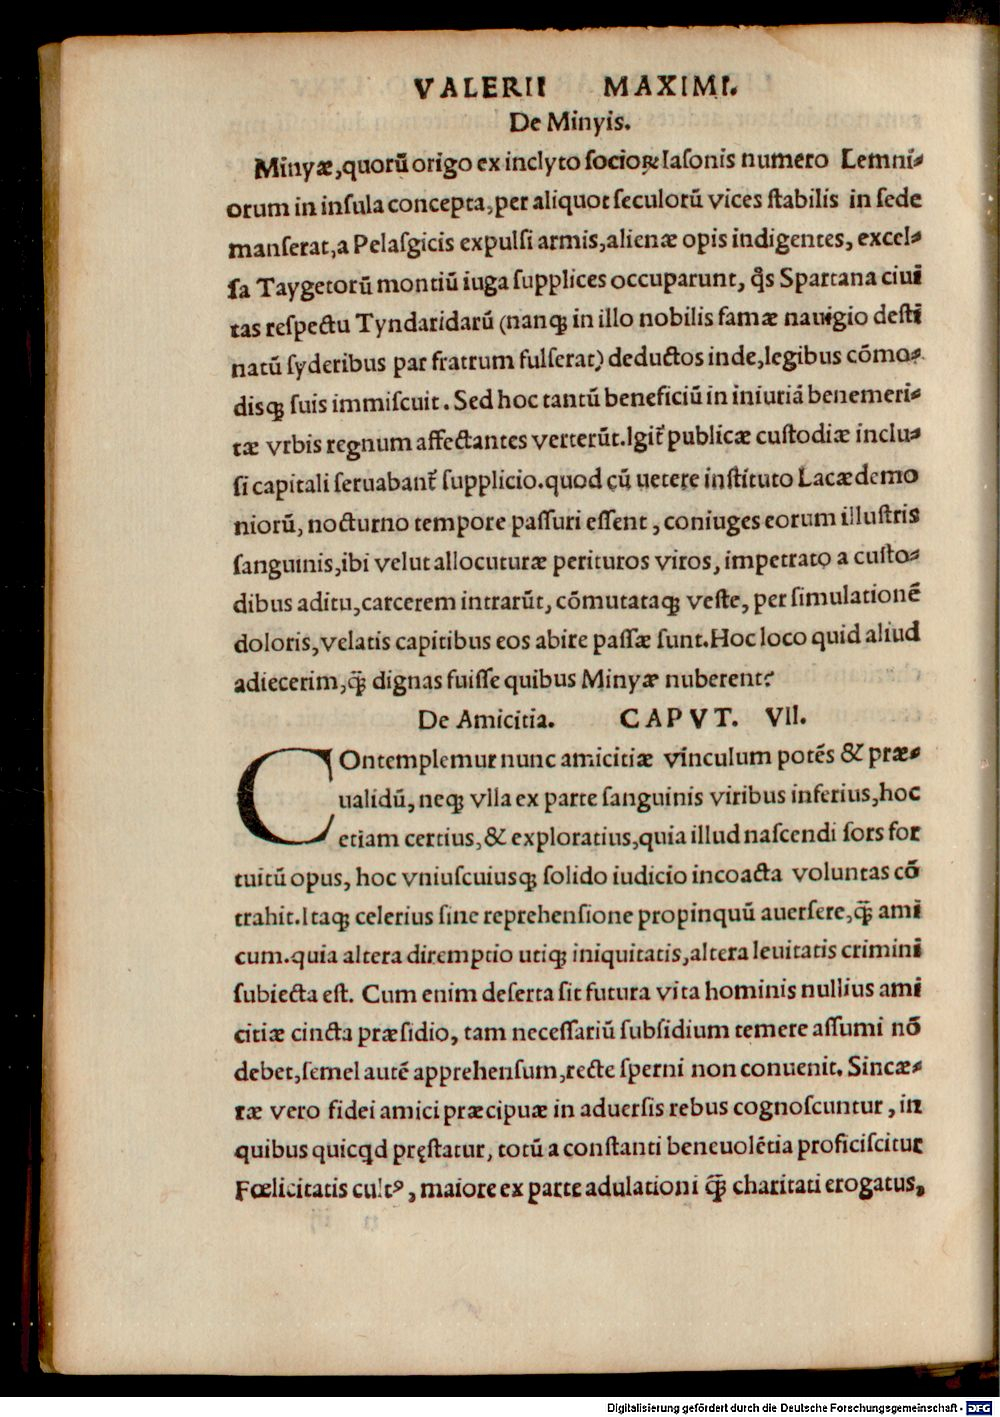 VALERII MAXIMI.
De Minyis.
Minyæ,quorū origo ex inclyto socioꝝ Iasonis numero Lemni-
orum in insula concepta,per aliquot seculorū vices stabilis in sede
manserat,a Pelasgicis expulsi armis,alienæ opis indigentes, excel-
sa Taygetorū montiū iuga supplices occuparunt, q̊s Spartana ciui
tas respectu Tyndaridarū (nanꝗ in illo nobilis famæ nauigio desti
natū syderibus par fratrum fulserat) deductos inde,legibus cōmo-
disꝗ suis immiscuit. Sed hoc tantū beneficiū in iniuriā benemeri-
tæ vrbis regnum affectantes verterūt.Igit̃ publicæ custodiæ inclu-
si capitali seruabant̃ supplicio.quod cū uetere instituto Lacædemo
niorū, nocturno tempore passuri essent, coniuges eorum illustris
sanguinis,ibi velut allocuturæ perituros viros, impetrato a custo-
dibus aditu,carcerem intrarūt, cōmutataꝗ veste, per simulationē
doloris,velatis capitibus eos abire passæ sunt.Hoc loco quid aliud
adiecerim,ꝗ̃ dignas fuisse quibus Minyæ nuberent?
De Amicitia. CAPVT. VII.
COntemplemur nunc amicitiæ vinculum potēs & præ-
ualidū, neꝗ vlla ex parte sanguinis viribus inferius,hoc
etiam certius,& exploratius,quia illud nascendi sors for
tuitū opus, hoc vniuscuiusꝗ solido iudicio incoacta voluntas cō
trahit.Itaꝗ celerius sine reprehensione propinquū auersere,ꝗ̃ ami
cum.quia altera diremptio utiꝗ iniquitatis,altera leuitatis crimini
subiecta est. Cum enim deserta sit futura vita hominis nullius ami
citiæ cincta præsidio, tam necessariū subsidium temere assumi nō
debet,semel autē apprehensum,recte sperni non conuenit. Sincæ-
ræ vero fidei amici præcipuæ in aduersis rebus cognoscuntur, in
quibus quicꝗd pręstatur, totū a constanti beneuolētia proficiscitur
Fœlicitatis cultꝰ, maiore ex parte adulationi ꝗ̃ charitati erogatus,
Digitalisierung gefördert durch die Deutsche Forschungsgemeinschaft - DFG